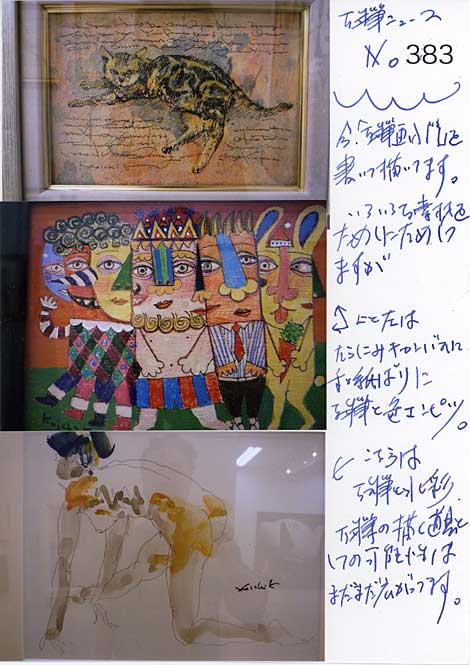 万年筆ニュース
No. 383
今、万年筆画
書いて描いてます。
いろいろな素材を
ためしにためして
ますが
上と左は
キャンバスに
和紙ばりに
万年筆と色エンピツ。
こちらは
万年筆と水彩
万年筆の描く道具と
しての可能性は
まだまだ広がってます。
Koichi